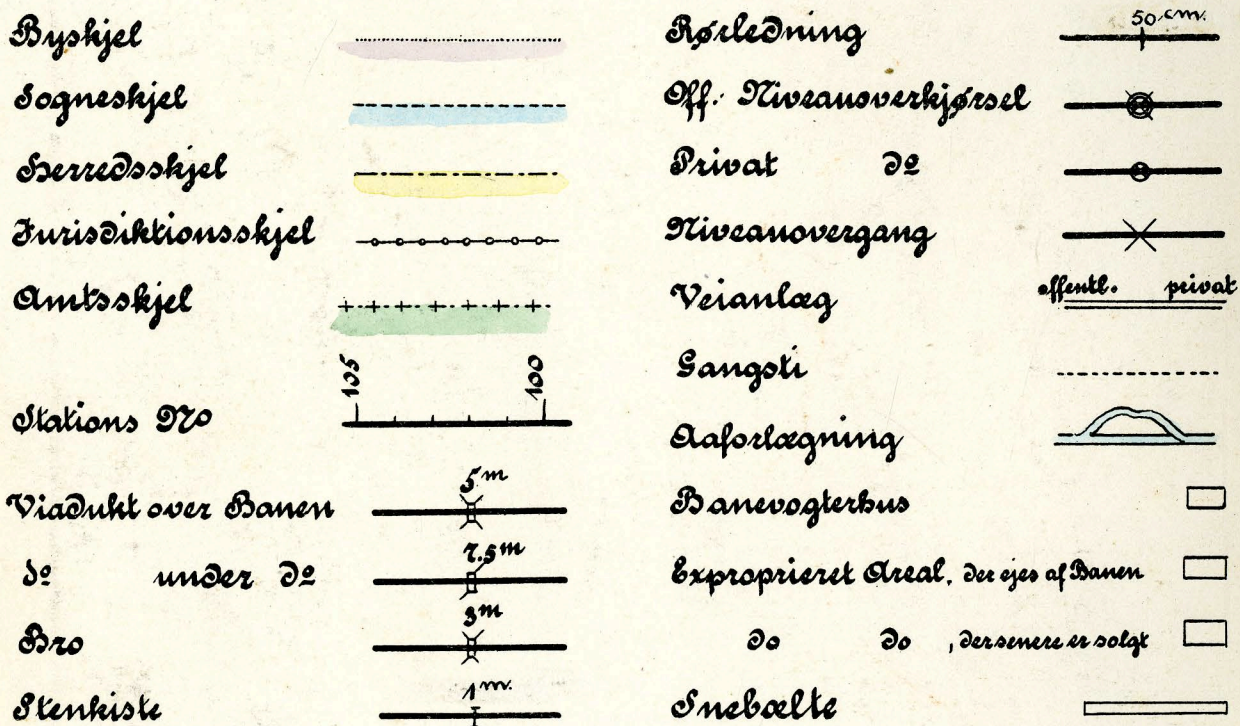 Byskjel
Sogneskjel
Herredsskjel
Jurisdiktionsskjel
Amtsskjel
105 100
Stations No
Viadukt over Banen 5 m
do under do 7.5 m
Bro 3 m
Stenkiste 1 m.
Rørledning 50 cm.
Off. Niveauoverkjørsel
Privat do
Niveauovergang
Veianlæg offentl. privat
Gangsti
Aaforlægning
Banevogterhus
Exproprieret Areal, der ejes af Banen
do do , der senere er solgt
Snebælte